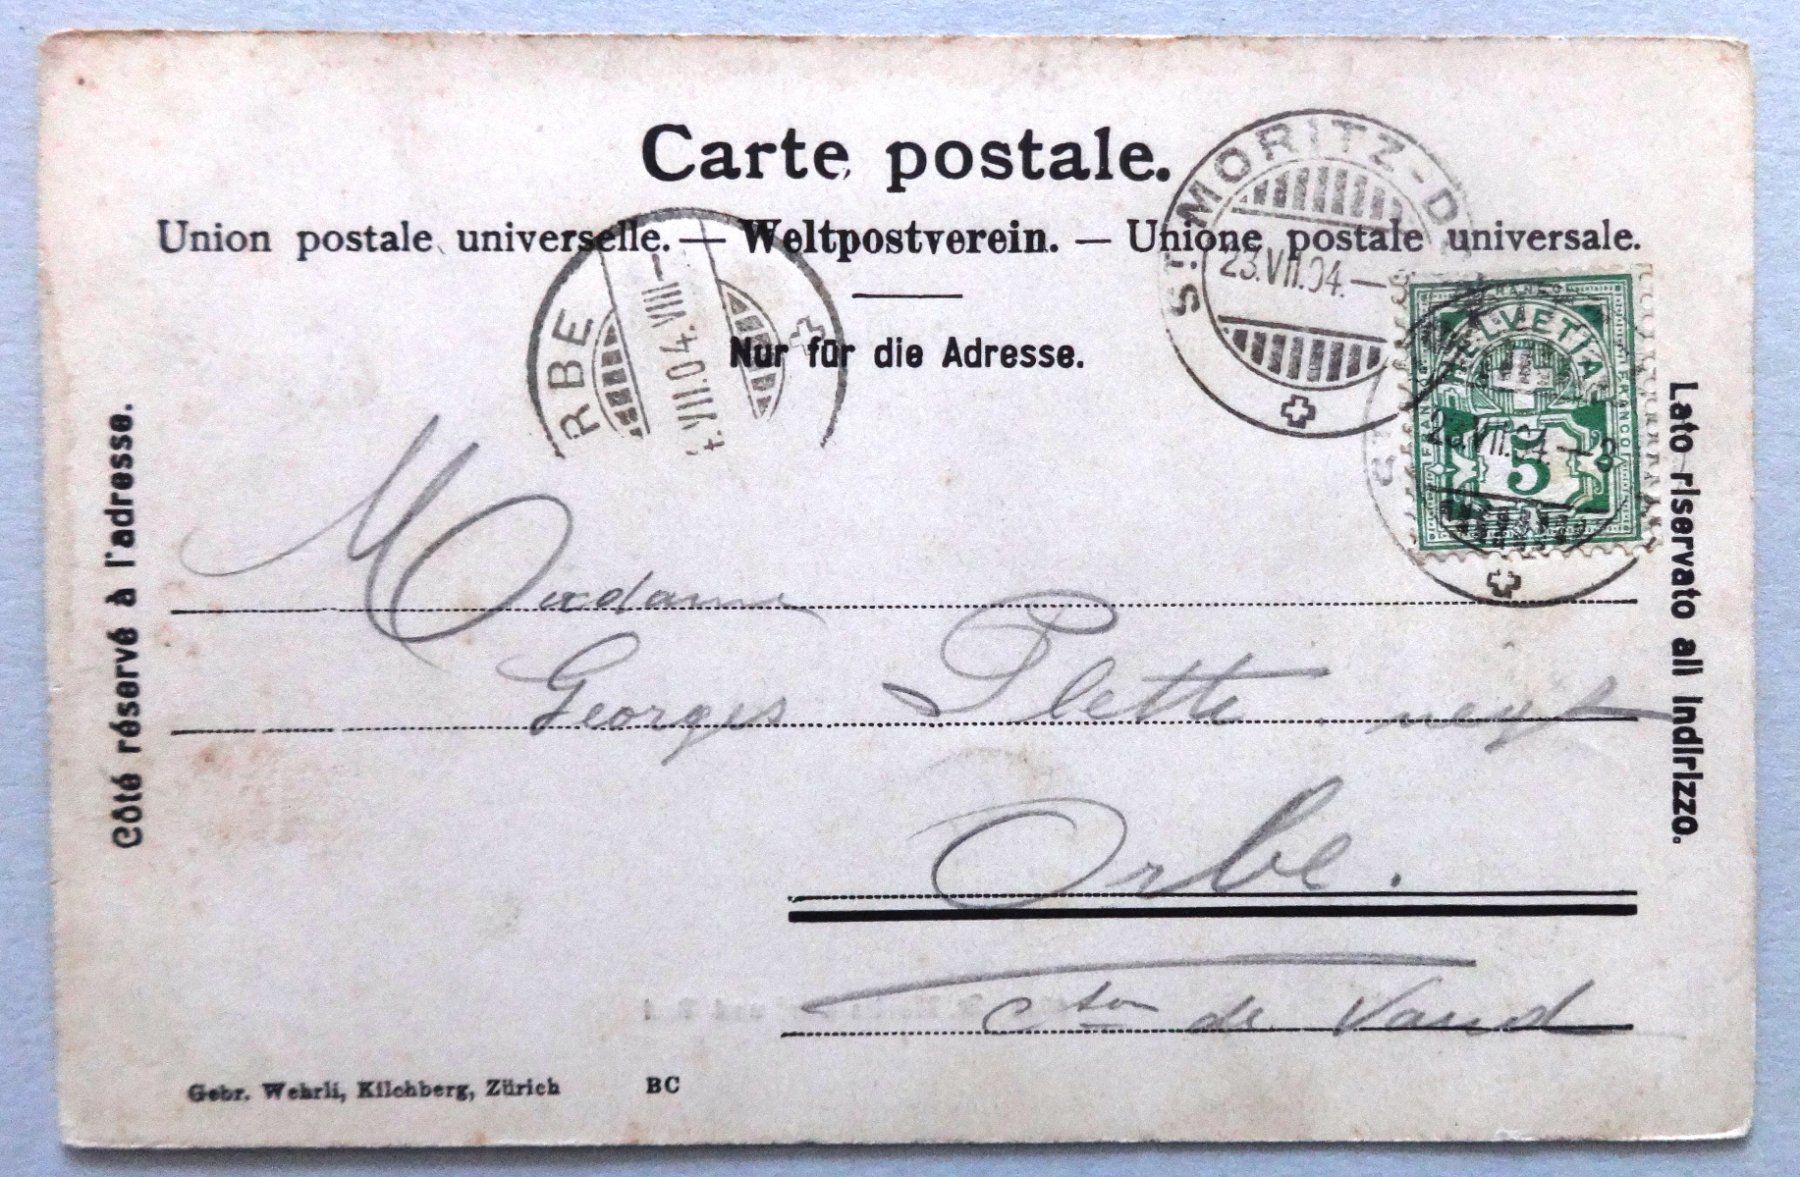 Carte postale.
Union postale universelle. — Weltpostverein. — Unione postale universale.
Nur für die Adresse.
ST. MORITZ-D
23.VII.04.—8
RBE
.VII.04.VIII—
HELVETIA
FRANCO
5
23.VII.04.—8
Côté réservé à l'adresse.
Lato riservato all indirizzo.
Madame
Georges Plette
Orbe.
Cton de Vaud
Gebr. Wehrli, Kilchberg, Zürich BC